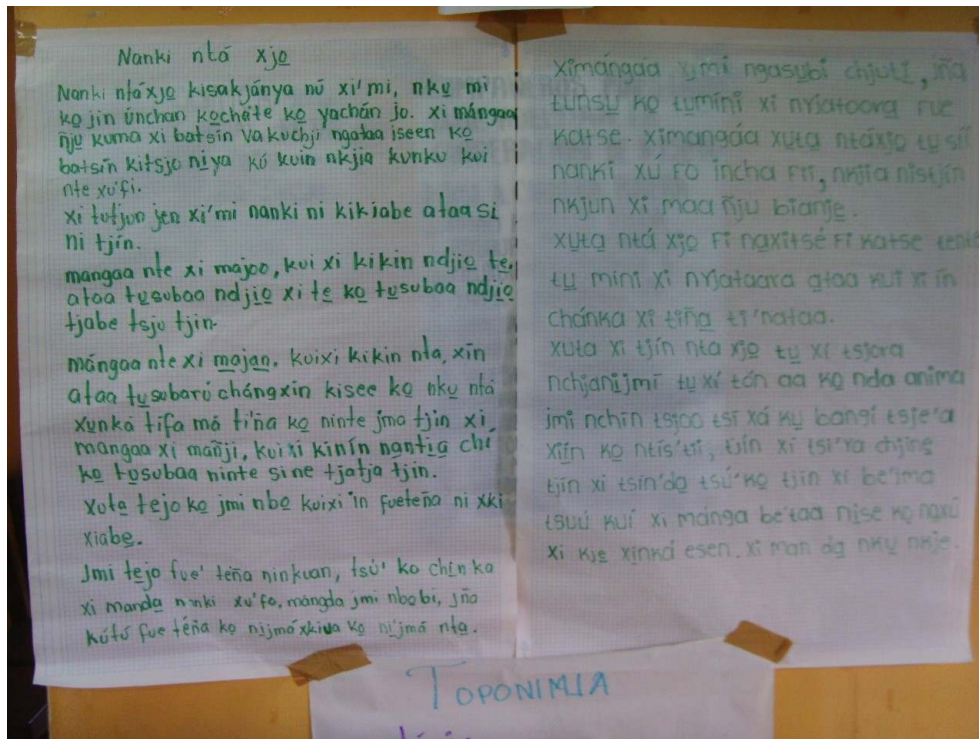 Nanki ntá xjo̱
Nanki ntáxjo̱ kisakjánya nú xi'mi, nku̱ mi
ko̱ jin únchan ko̱cháte ko̱ yachán jo. xi mángaa
ñju̱ kuma xi batsín va kuchji ngataa iseen ko̱
batsín kitsjo ni̱ya kú kuin nkjia kunku kui
nte xu'fi.
xi tutjun jen xi'mi nanki ni kikiabe ataa si
ni tjín.
mangaa nte xi majoo, kui xi kikin ndji̱o̱ te̱,
ataa tu̱subaa ndji̱o̱ xi te̱ ko̱ tu̱subaa ndji̱o̱
tjabe tsju tjin.
mángaa nte xi ma̱ja̱n, kuixi kikin nta, xín
ataa tu̱subarú chángxin kisee ko̱ nku̱ ntá
xu̱nká tífa má ti'ña ko̱ ninte jma tjin xi,
mangaa xi mañji, kui xi kinín nanti̱a̱ chí
ko̱ tu̱subaa ninte si ne tjatja tjin.
xuta̱ tejo ko̱ jmi nbo̱ kuixi 'in fueteña ni xki
xiabe̱.
Jmi te̱jo fue' téña ninkuan, tsú' ko chi̱n ka
xi manda̱ nanki xu'fo, mángda jmi nbo̱bi, jño
kútú fue téña ko̱ nijmáxkiva ko̱ ni'jmá nta̱.
ximángáa xi̱mi ngasu̱bi chjuti̱, iña
tu̱nsu̱ ko̱ tu̱míní xi nriataara rue
katse. ximangáa xu̱ta̱ ntáxjo tu̱ sii
nanki xú fo incha fii, nkjia nistjín
nkjun xi maa ñju bianje.
xu̱ta̱ ntá xjo̱ fi na̱xi̱tsé fi katse
tu̱ míní xi nrjataara a̱taa kui xi ín
chánka xi tiña̱ ti'nataa.
xuta xi tjín nta xjo̱ tu̱ xí tsjara
nchjani̱jmí tu̱ xí tán aa ko̱ nda anima
jmi nchin tsjoo tsi xá ku̱ bangi tsje'a
xi̱i̱n ko̱ ntis'ti̱, tjín xi tsi'ra chji̱ne̱
tjín xi tsín'da̱ tsú'ko̱ tjin xi be'jma
tsuú kui xi mánga be'taa nise ko̱ na̱xú
xi kje̱ xi̱nká esen. xi man da̱ nku̱ nkje.
TOPONIMIA